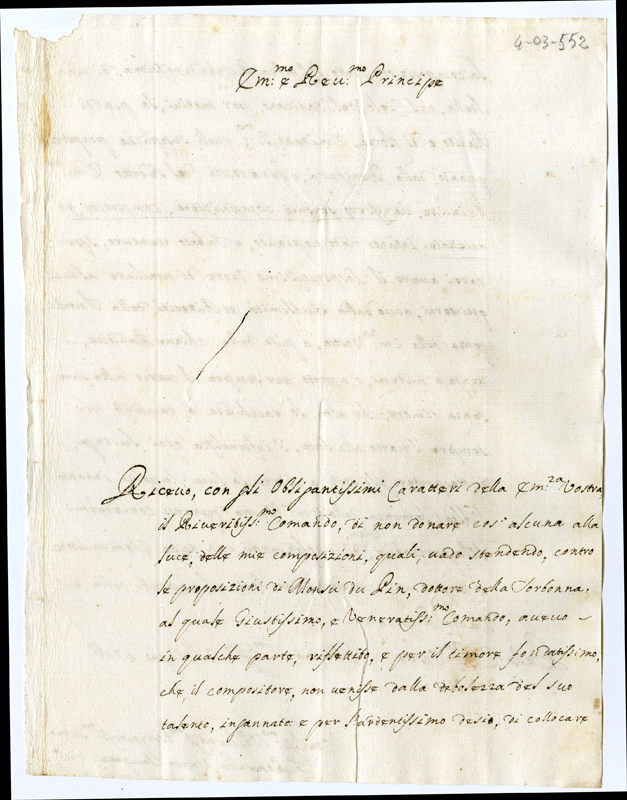 4-03-552
Em:mo e Rev:mo Principe
Ricevo, con gli Obligantissimi Caratteri della Em:za Vostra
il Riveritiss:mo Comando, di non donare cos' alcuna alla
luce, delle mie composizioni, quali, vado stendendo, contro
le proposizioni di Monsù du Pin, dottore della Sorbonna,
al quale Giustissimo, e Veneratiss:mo Comando, avevo
in qualche parte, riflettuto, e per il timore fondatissimo,
che, il compositore, non venisse dalla debolezza del suo
talento, ingannato: e per l'ardentissimo desio, di collocare